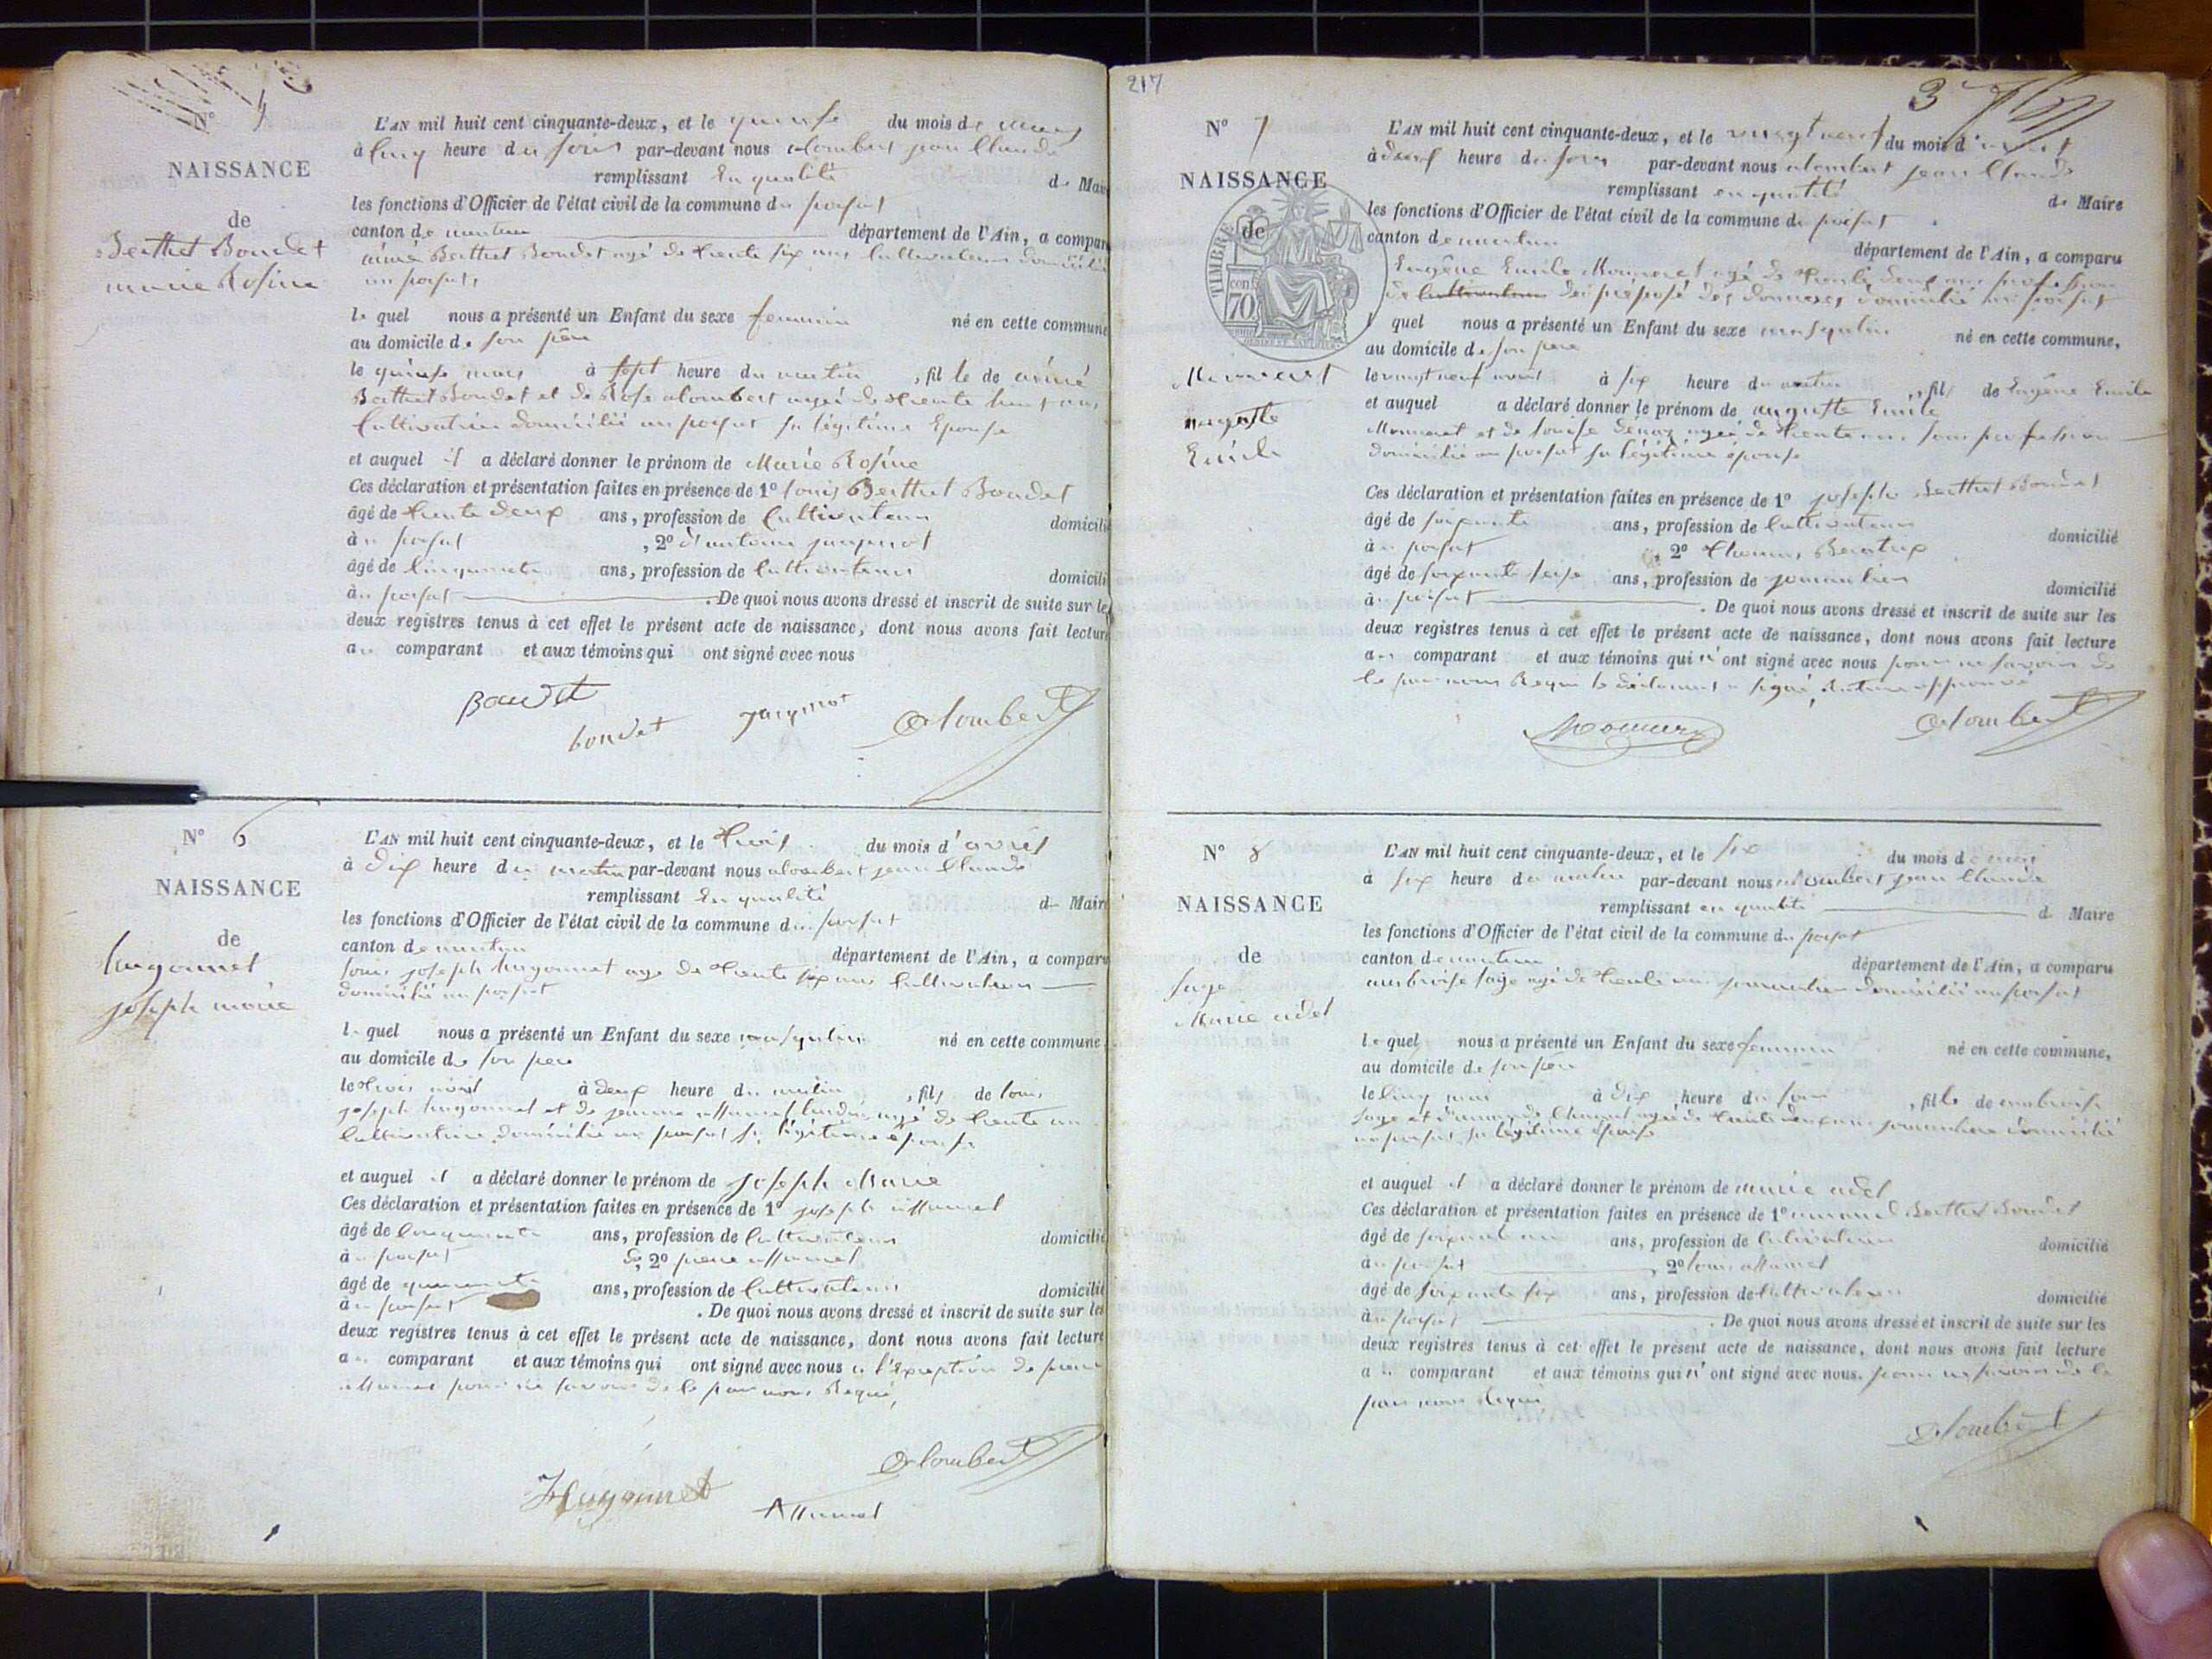 N° 
NAISSANCE
de
Berthet Bondet
marie Rosine
L'AN mil huit cent cinquante-deux, et le quinse du mois de mars
à cinq heure du soir par-devant nous alombert jean Claude
remplissant En qualité de Mair
les fonctions d'Officier de l'état civil de la commune du poisat
canton de nantua département de l'Ain, a compar
aimé Berthet Bondet agé de trente six ans Cultivateur domicilié
au poisat,
le quel nous a présenté un Enfant du sexe feminin né en cette commune
au domicile de son père
le quinse mars à sept heure du matin, fil le de aimé
Berthet Bondet et de Rose alombert agée de trente huit ans
Cultivatrice domicilié au poisat sa légitime Epouse
et auquel il a déclaré donner le prénom de Marie Rosine
Ces déclaration et présentation faites en présence de 1° louis Berthet Bondet
âgé de trente deux ans, profession de Cultivateur domicilié
à u poisat, 2° antoine jacquinot
âgé de Cinquante ans, profession de Cultivateur domicili
à u poisat. De quoi nous avons dressé et inscrit de suite sur les
deux registres tenus à cet effet le présent acte de naissance, dont nous avons fait lecture
au comparant et aux témoins qui ont signé avec nous
Boudet
bondet
jaquinot
Alombert
N° 6
NAISSANCE
de
hugonnet
joseph marie
L'AN mil huit cent cinquante-deux, et le trois du mois d'avril
à Dix heure du matin par-devant nous alombert jean Claude
remplissant En qualité de Mair
les fonctions d'Officier de l'état civil de la commune du poisat
canton de nantua département de l'Ain, a comparu
louis joseph hugonnet agé de trente six ans Cultivateur
domicilié au poisat
le quel nous a présenté un Enfant du sexe masqulin né en cette commune
au domicile de son père
le trois avril à deux heure du matin, fils de louis
joseph hugonnet et de jeanne allumel agé de trente un
Cultivatrice domicilié au poisat sa légitime épouse
et auquel il a déclaré donner le prénom de joseph Marie
Ces déclaration et présentation faites en présence de 1° joseph allumel
âgé de Cinquante ans, profession de Cultivateur domicilié
à u poisat 2° pierre allumel
âgé de quarante ans, profession de Cultivateur domicilié
à u poisat. De quoi nous avons dressé et inscrit de suite sur les
deux registres tenus à cet effet le présent acte de naissance, dont nous avons fait lecture
au comparant et aux témoins qui ont signé avec nous a l'Exception de pierre
allumel pour ne savoir de le par nous Requi,
Alombert
Hugonnet
Allumel
217
3
N° 7
NAISSANCE
de
TIMBRE
70
Monneret
auguste
Emile
L'AN mil huit cent cinquante-deux, et le vingt neuf du mois d'avril
à deux heure du soir par-devant nous alombert jean Claude
remplissant en qualité de Maire
les fonctions d'Officier de l'état civil de la commune du poisat
canton de nantua département de l'Ain, a comparu
Eugêne Emile Monneret agé de trente deux ans profession
de Cultivateur des préposé des douanes domicilié au poisat
quel nous a présenté un Enfant du sexe masqulin né en cette commune,
au domicile de son père
le vingt neuf avril à six heure du matin, fils de Eugêne Emile
et auquel a déclaré donner le prénom de auguste Emile
Monneret et de louise agée de trente ans sans profession
domicilié au poisat sa légitime épouse
Ces déclaration et présentation faites en présence de 1° joseph Berthet Bondet
âgé de soixante ans, profession de Cultivateur domicilié
à u poisat, 2° thomas
âgé de soixante seise ans, profession de jornalier domicilié
à u poisat. De quoi nous avons dressé et inscrit de suite sur les
deux registres tenus à cet effet le présent acte de naissance, dont nous avons fait lecture
au comparant et aux témoins qui n'ont signé avec nous pour ne savoir de
le par nous Requi le déclarant a signé, approuvé
Alombert
N° 8
NAISSANCE
de
sage
Marie adel
L'AN mil huit cent cinquante-deux, et le six du mois de mai
à six heure du matin par-devant nous alombert jean Claude
remplissant en qualité de Maire
les fonctions d'Officier de l'état civil de la commune du poisat
canton de nantua département de l'Ain, a comparu
ambroise sage agé de trente ans jornalier domicilié au poisat
le quel nous a présenté un Enfant du sexe feminin né en cette commune,
au domicile de son père
le Cinq mai à Dix heure du soir, fille de ambroise
sage et agée de trente deux ans jornalière domicilié
au poisat sa légitime épouse
et auquel il a déclaré donner le prénom de marie adel
Ces déclaration et présentation faites en présence de 1° Berthet Bondet
âgé de soixante ans, profession de Cultivateur domicilié
à u poisat, 2° louis allumel
âgé de soixante six ans, profession de Cultivateur domicilié
à u poisat. De quoi nous avons dressé et inscrit de suite sur les
deux registres tenus à cet effet le présent acte de naissance, dont nous avons fait lecture
au comparant et aux témoins qui n'ont signé avec nous. pour ne savoir de le
par nous Requi
Alombert